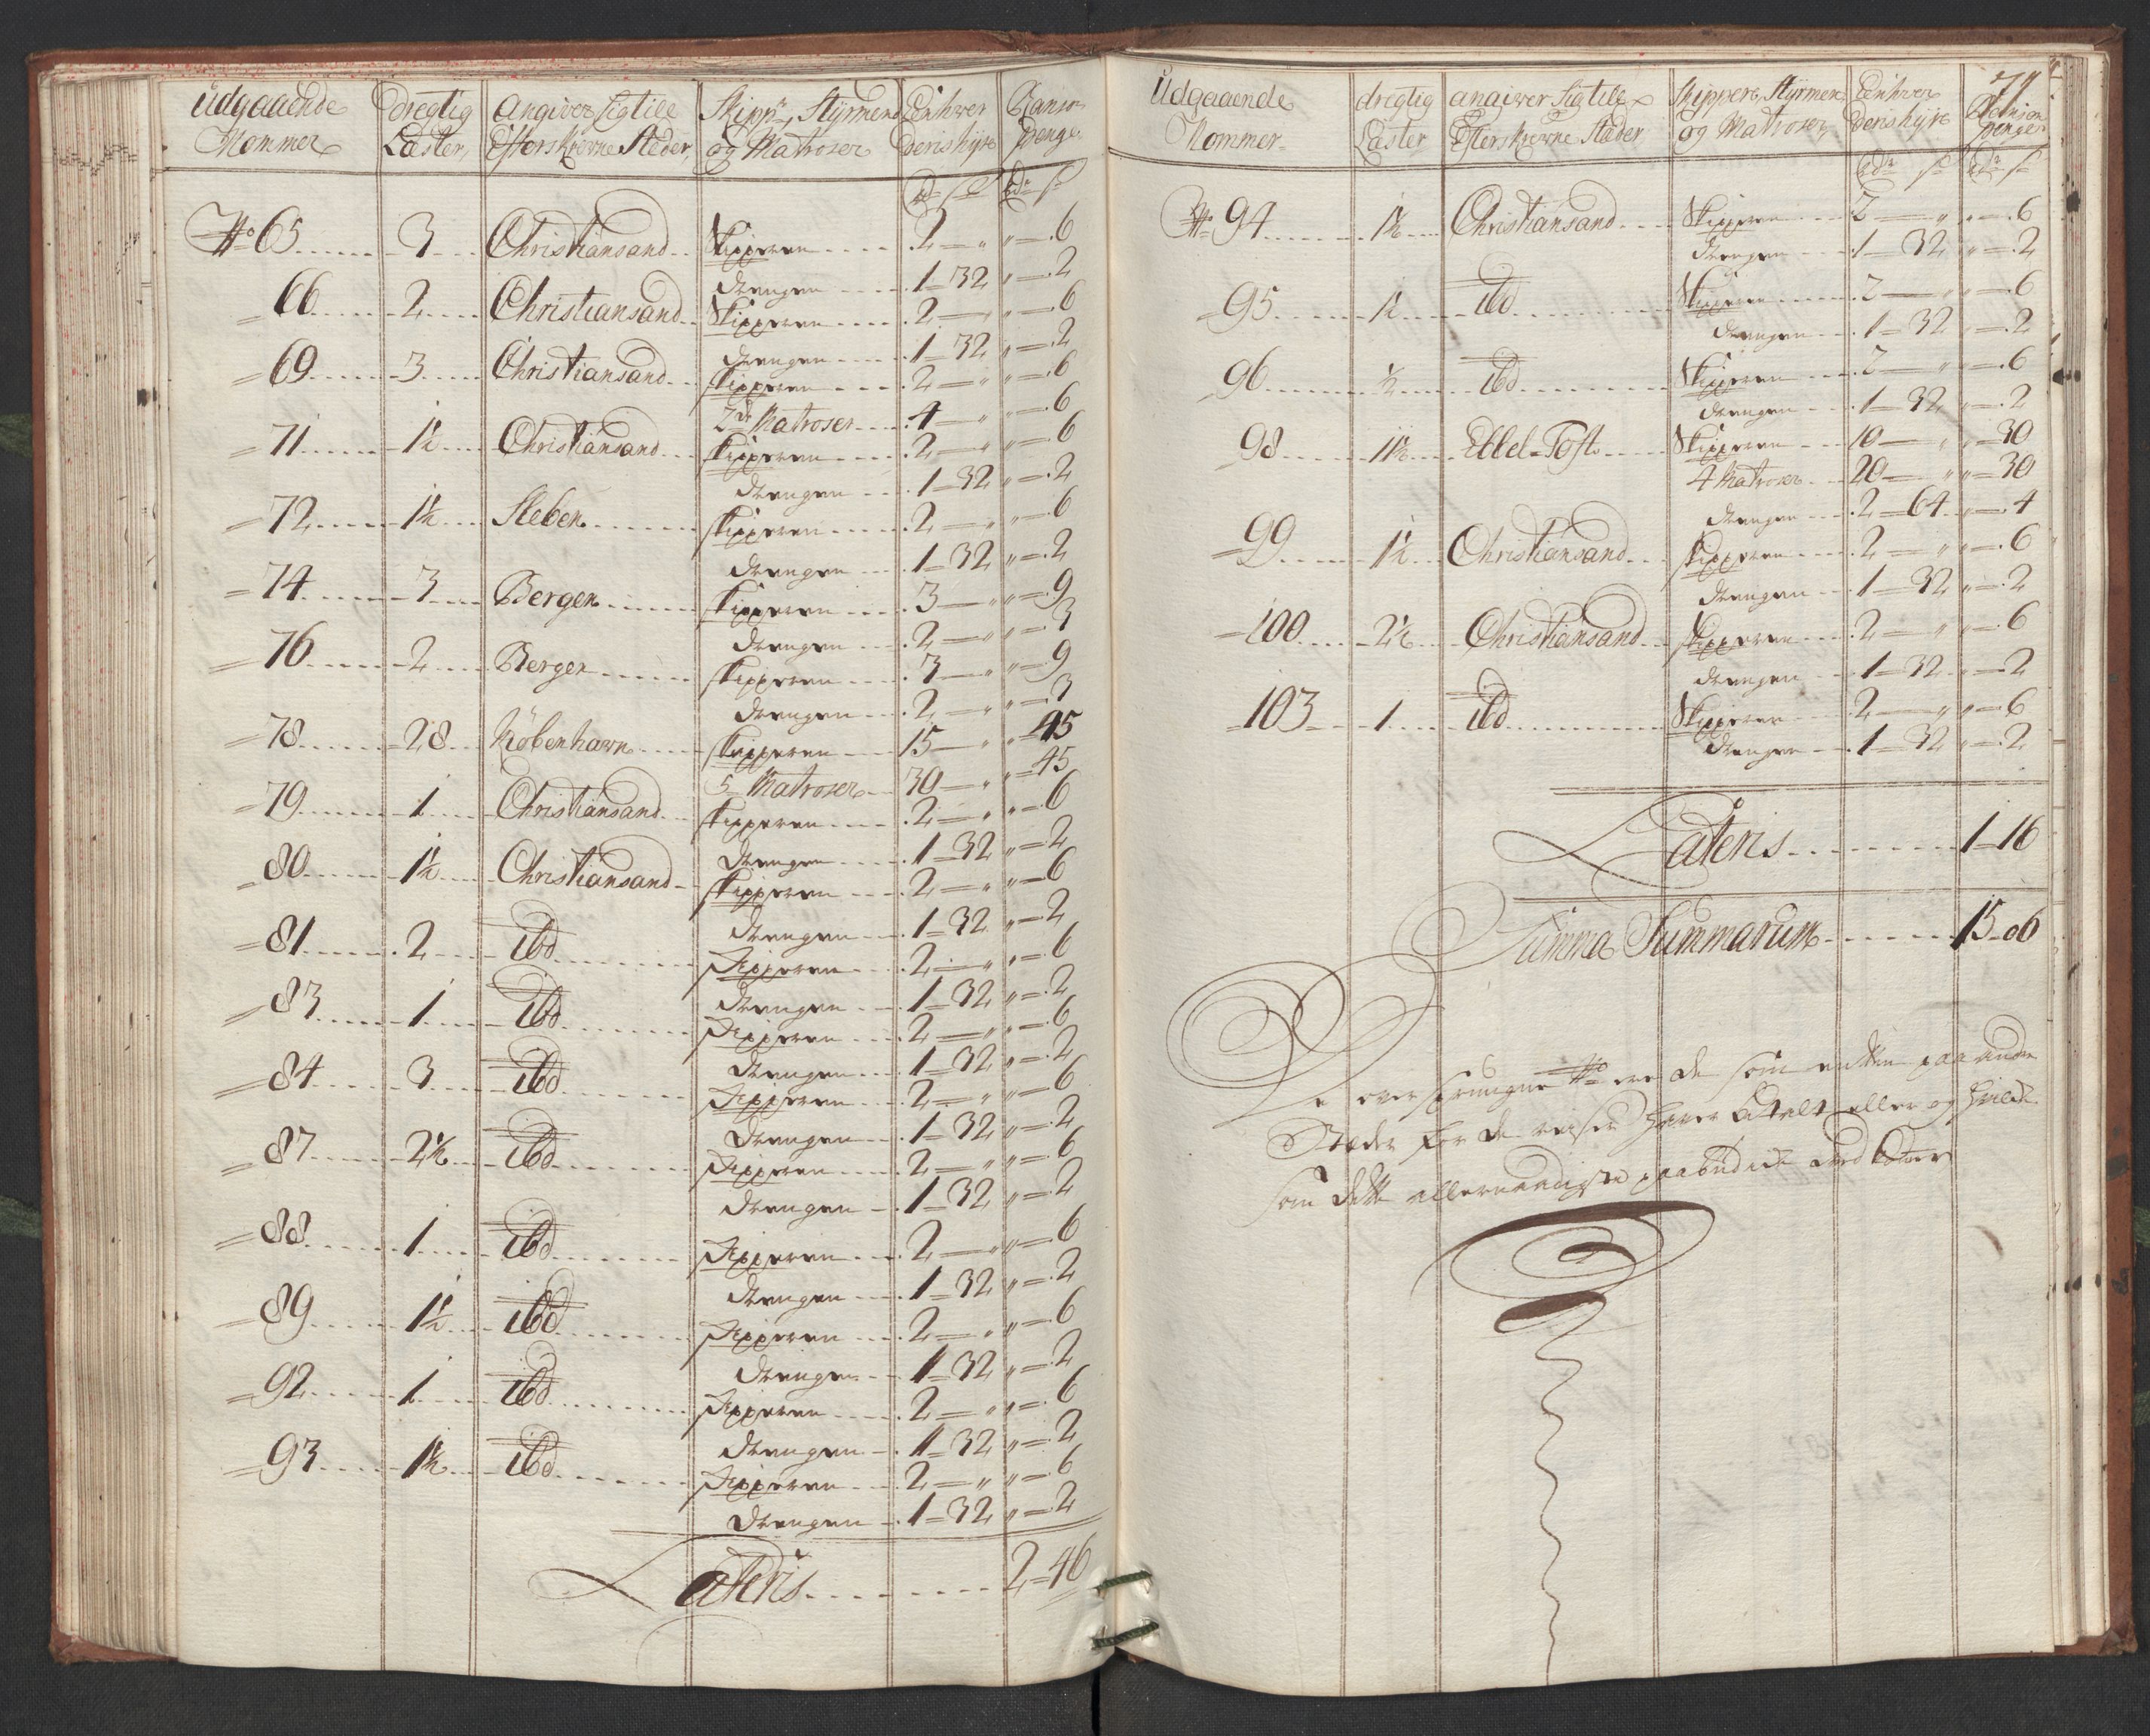 Udgaaende Nommer | dregtig Læster | Angiver sig till Efterskrevne Stæder | Skippr, Styrmend og Matroser | Einhver deris hÿre | Ranson Penge
Rdr s | Rdr s
No 65 | 3 | Christiansand | Skipperen | 2 — " | " — 6
drengen | 1 — 32 | " — 2
66 | 2 | Christiansand | Skipperen | 2 — " | " — 6
drengen | 1 — 32 | " — 2
69 | 3 | Christiansand | Skipperen | 2 — " | " — 6
2de Matroser | 4 — " | " — 6
71 | 1½ | Christiansand | Skipperen | 2 — " | " — 6
drengen | 1 — 32 | " — 2
72 | 1½ | Sleben | Skipperen | 2 — " | " — 6
drengen | 1 — 32 | " — 2
74 | 3 | Bergen | Skipperen | 3 — " | " — 9
drengen | 2 — " | " — 3
76 | 2 | Bergen | Skipperen | 3 — " | " — 9
drengen | 2 — " | " — 3
78 | 28 | Köbenhavn | Skipperen | 15 — " | " — 45
5 Matroser | 30 — " | " — 45
79 | 1 | Christiansand | Skipperen | 2 — " | " — 6
drengen | 1 — 32 | " — 2
80 | 1½ | Christiansand | Skipperen | 2 — " | " — 6
drengen | 1 — 32 | " — 2
81 | 2 | ibd | Skipperen | 2 — " | " — 6
drengen | 1 — 32 | " — 2
83 | 1 | ibd | Skipperen | 2 — " | " — 6
drengen | 1 — 32 | " — 2
84 | 3 | ibd | Skipperen | 2 — " | " — 6
drengen | 1 — 32 | " — 2
87 | 2½ | ibd | Skipperen | 2 — " | " — 6
drengen | 1 — 32 | " — 2
88 | 1 | ibd | Skipperen | 2 — " | " — 6
drengen | 1 — 32 | " — 2
89 | 1½ | ibd | Skipperen | 2 — " | " — 6
drengen | 1 — 32 | " — 2
92 | 1 | ibd | Skipperen | 2 — " | " — 6
drengen | 1 — 32 | " — 2
93 | 1½ | ibd | Skipperen | 2 — " | " — 6
drengen | 1 — 32 | " — 2
Lateris | 2 — 46
Udgaaende Nommer | dregtig Læster | angiver sig till Efterskrevne Stæder | Skippere, Styrmen og Matroser | Einhver deris hÿre | Ranson penger
Rdr s | Rdr s
No 94 | 1½ | Christiansand | Skipperen | 2 — " | " — 6
drengen | 1 — 32 | " — 2
95 | 1½ | ibd | Skipperen | 2 — " | " — 6
drengen | 1 — 32 | " — 2
96 | ½ | ibd | Skipperen | 2 — " | " — 6
drengen | 1 — 32 | " — 2
98 | 11½ | Ebbel-Toft | Skipperen | 10 — " | " — 30
4 Matroser | 20 — " | " — 30
drengen | 2 — 64 | " — 4
99 | 1½ | Christiansand | Skipperen | 2 — " | " — 6
drengen | 1 — 32 | " — 2
100 | 2½ | Christiansand | Skipperen | 2 — " | " — 6
drengen | 1 — 32 | " — 2
103 | 1 | ibd | Skipperen | 2 — " | " — 6
drengen | 1 — 32 | " — 2
Lateris | 1 — 16
Summa Summarum | 15 — 06
De oversprungne No ere de som entten paa andre
Stæder for de reiser haver betalt eller og
som dette allernaadigste paabud